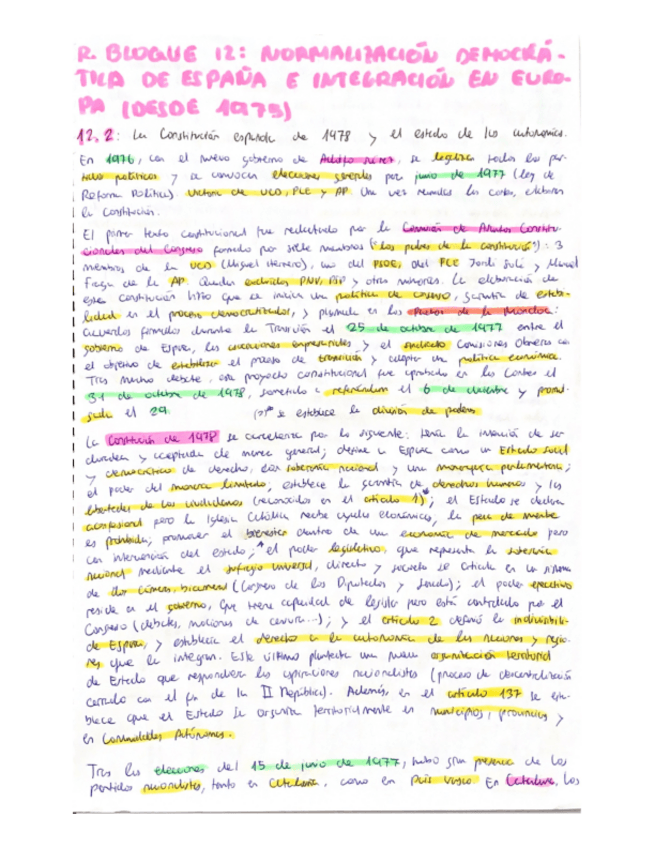 R. BLOQUE 12: NORMALIZACIÓN DEMOCRÁ-
TICA DE ESPAÑA E INTEGRACIÓN EN EURO-
PA (DESDE 1975)
12.2: La Constitución española de 1978 y el estado de las autonomías.
En 1976, con el nuevo gobierno de Adolfo Suárez, se legaliza todos los par-
tidos políticos y se convocan elecciones generales por junio de 1977 (Ley de
Reforma Política). Victoria de UCD, PCE y AP. Una vez reunidas las cortes, elaboran
la Constitución.
El primer texto constitucional fue redactado por la Comisión de Asuntos Constitu-
cionales del Congreso formado por siete miembros ("los padres de la constitución"): 3
miembros de la UCD (Miguel Herrero), uno del PSOE, del PCE Jordi Solé y Manuel
Fraga de la AP. Quedan excluidos PNV, PSP y otras minorías. La elaboración de
esta constitución hizo que se inicia un política de consenso, garantía de estabi-
lidad en el proceso democratizador, y plasmada en los Pactos de la Moncloa:
acuerdos firmados durante la Transición el 25 de octubre de 1977 entre el
gobierno de España, las asociaciones empresariales y el sindicato Comisiones Obreras con
el objetivo de estabilizar el proceso de transición y adoptar una política económica.
Tras mucho debate, este proyecto constitucional fue aprobado en las Cortes el
31 de octubre de 1978, sometido a referéndum el 6 de diciembre y promul-
gada el 29. se establece la división de poderes
La Constitución de 1978 se caracteriza por lo siguiente: tenía la intención de ser
duradera y aceptada de manera general; define a España como un Estado social
y democrático de derecho, con soberanía nacional y una monarquía parlamentaria;
el poder del monarca limitado; establece la garantía de derechos humanos y las
libertades de los ciudadanos (reconocidos en el artículo 1); el Estado se declara
aconfesional pero la Iglesia Católica recibe ayudas económicas; la pena de muerte
es prohibida; promueve el bienestar dentro de una economía de mercado pero
con intervención del estado; el poder legislativo, que representa la soberanía
nacional mediante el sufragio universal, directo y secreto se articula en un sistema
de dos cámaras, bicameral (Congreso de los Diputados y Senado); el poder ejecutivo
reside en el gobierno, que tiene capacidad de legislar pero está controlado por el
Congreso (debates, mociones de censura...); y el artículo 2 definió la indivisibili-
de España, y establecía el derecho a la autonomía de las naciones y regio-
nes que la integran. Este último plantea una nueva organización territorial
de Estado que respondiera las aspiraciones nacionalistas (proceso de descentralización
cerrado con el fin de la II República). Además, en el artículo 137 se esta-
blece que el Estado se organiza territorialmente en municipios, provincias y
en Comunidades Autónomas.
Tras las elecciones del 15 de junio de 1977, hubo gran presencia de los
partidos nacionalistas, tanto en Cataluña, como en País Vasco. En Cataluña, los